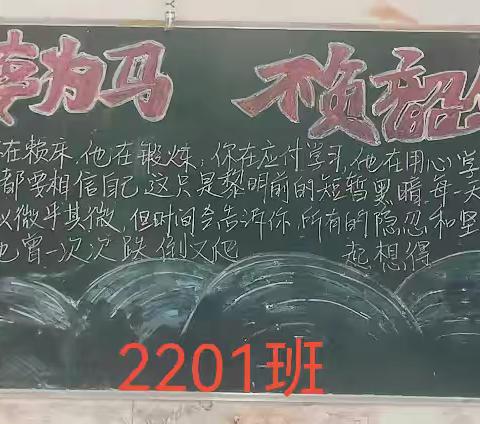 为马 不负韶
在赖床，他在锻炼；你在应付学习，他在用心学
都要相信自己，这只是黎明前的短暂黑暗，每一天
以微乎其微，但时间会告诉你，所有的隐忍和坚
也曾一次次跌倒又爬 起想得
2201班